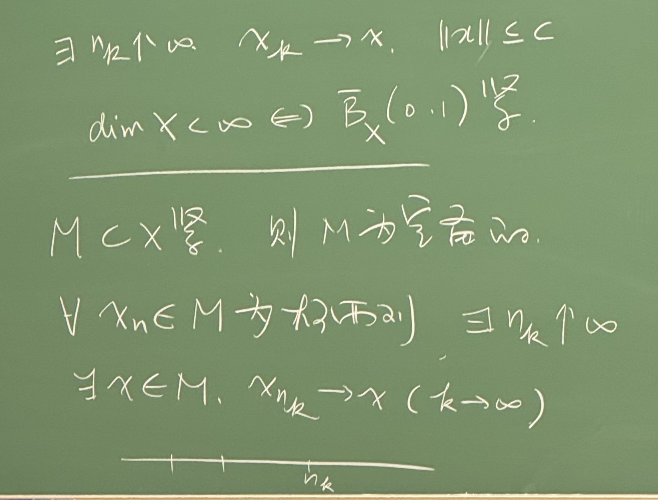 ∃ n_k↑∞ x_k → x. ||x|| ≤ c
dim X < ∞ ⇔ B̄_X(0.1) 紧.
M ⊂ X 紧. 则 M 为完备的.
∀ x_n ∈ M 为柯西列 ∃ n_k ↑ ∞
∃ x ∈ M. x_{n_k} → x (k→∞)
n_k